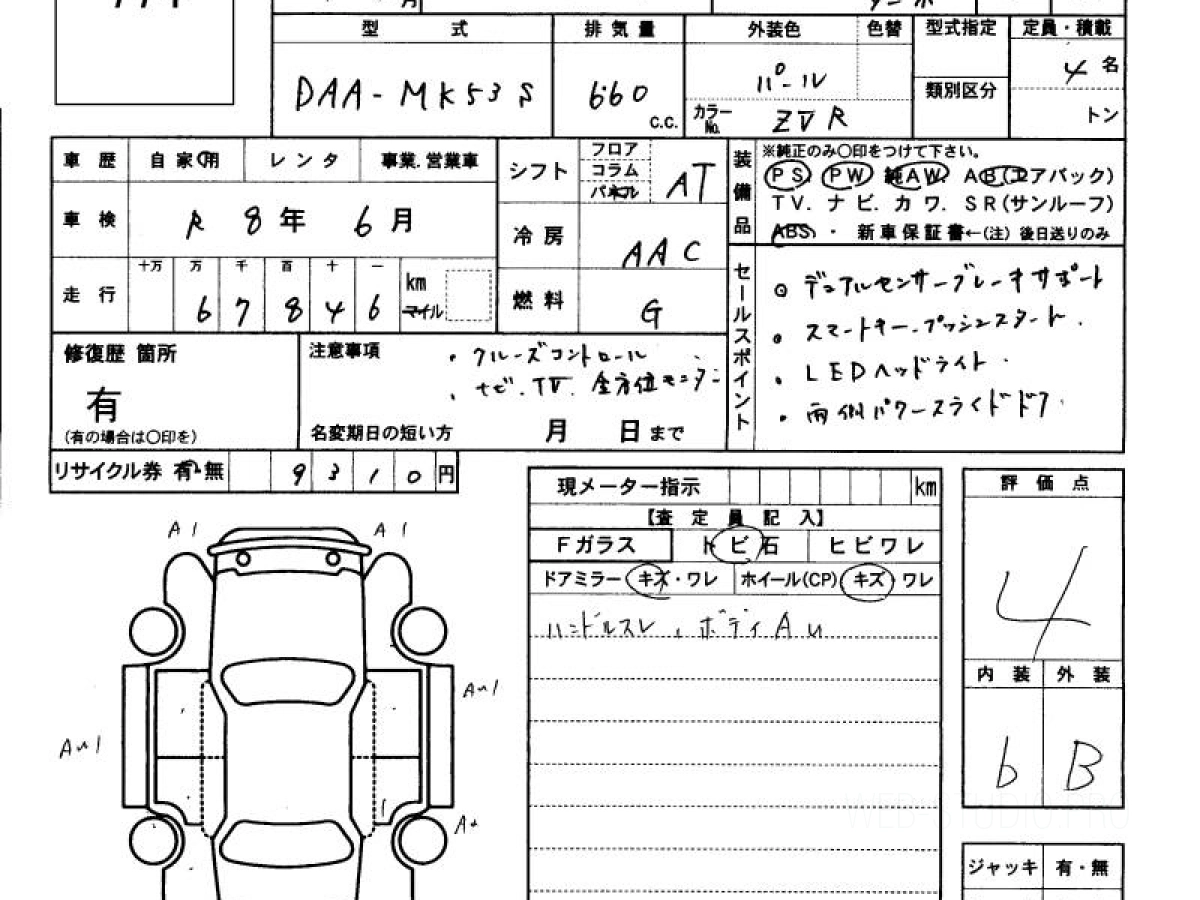 型 式 排気量 外装色 色替 型式指定 定員・積載
DAA-MK53S 660 c.c. パール 4名
カラーNo. ZVR 類別区分 トン
車歴 自家用 レンタ 事業.営業車 シフト フロア コラム パネル AT
車検 R 8年 6月 冷房 AAC
走行 十万 万 千 百 十 一 km マイル
6 7 8 4 6
燃料 G
装備品 ※純正のみ〇印をつけて下さい。
PS. PW. 純AW. AB(エアバック)
TV. ナビ. カワ. SR(サンルーフ)
ABS. ・ 新車保証書←(注) 後日送りのみ
セールスポイント
デュアルセンサーブレーキサポート
スマートキー.プッシュスタート.
・LEDヘッドライト・
・両側パワースライドドア.
修復歴 箇所
有
(有の場合は〇印を)
注意事項
・クルーズコントロール
・ナビ.TV.全方位モニター
名変期日の短い方 月 日まで
リサイクル券 有・無 9 3 1 0 円
現メーター指示 km
【査定員記入】
Fガラス トビ石 ヒビワレ
ドアミラー キズ・ワレ ホイール(CP) キズ・ワレ
ハンドルスレ、ボディAu
評価点
4
内装 外装
b B
A1 A1
Au1
Au1
ジャッキ 有・無
WEB-STUDIO.PRO